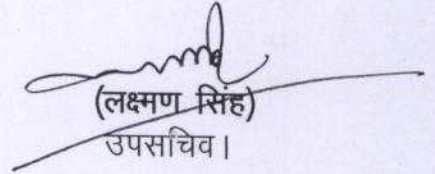 (लक्ष्मण सिंह)
उपसचिव।